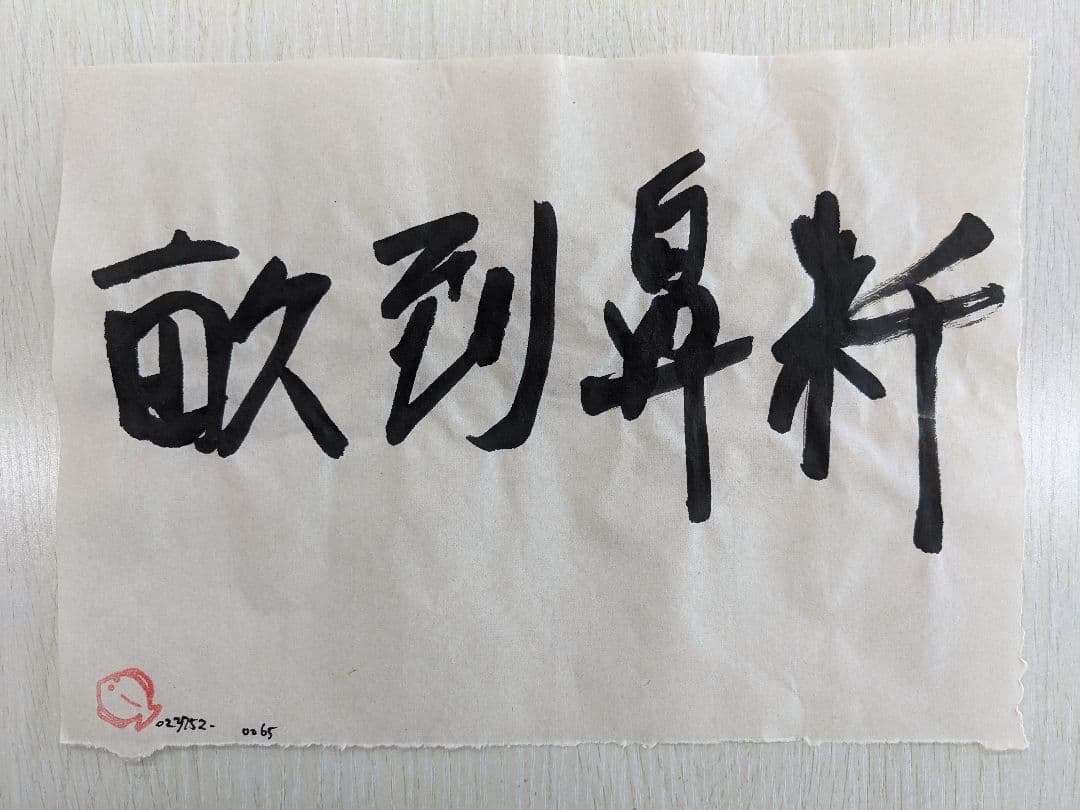 畝到鼻粁
023752- 0065